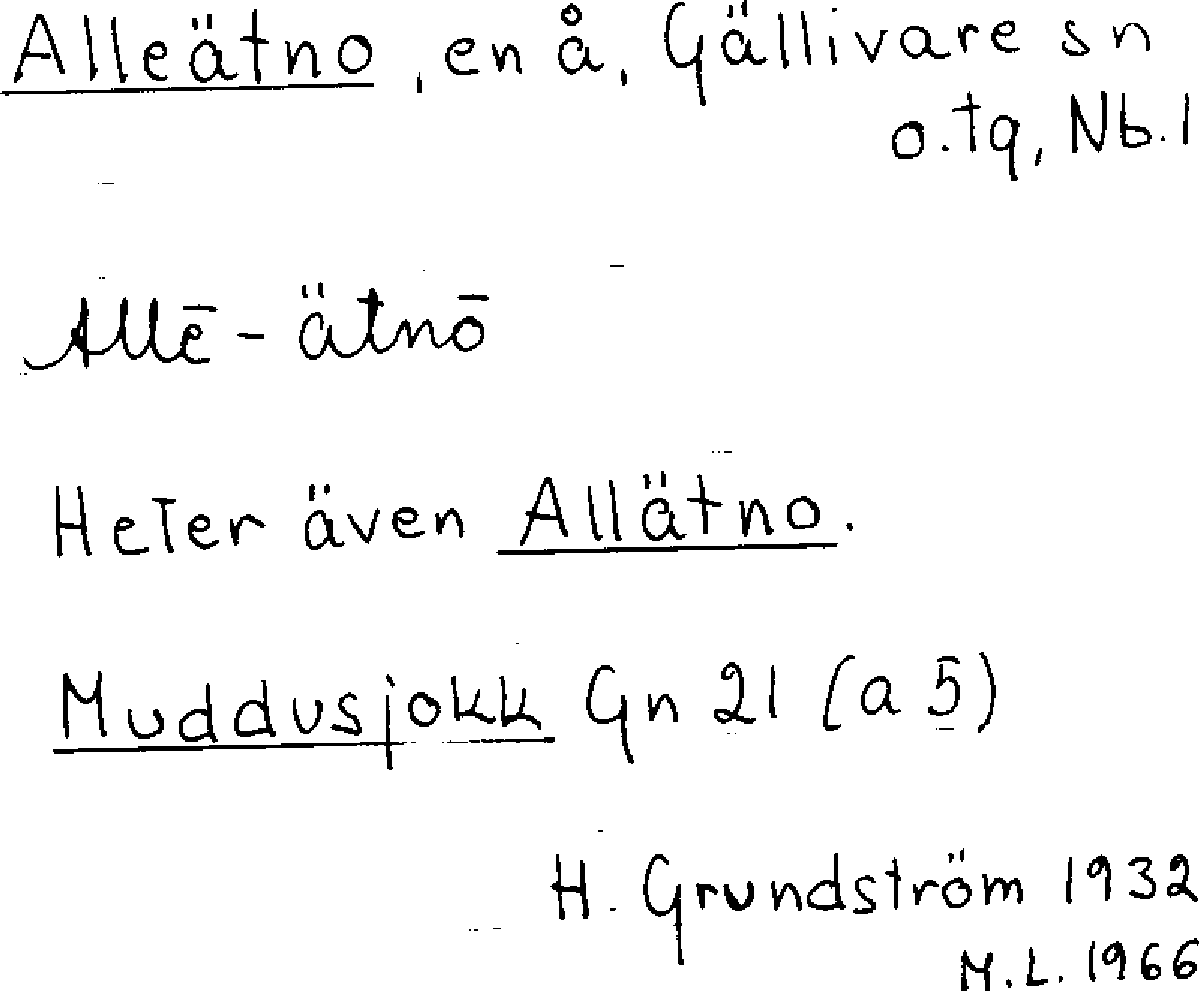 Alleätno, en å, Gällivare sn
o. tg, Nb. l
Allē-ätnō
Heter även Allätno.
Muddusjokk Gn 21 (a 5)
H. Grundström 1932
M.L. 1966